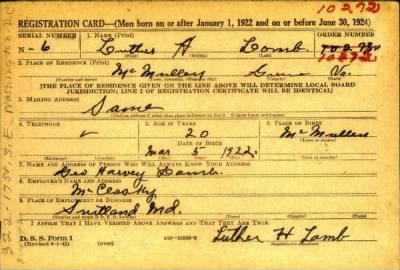 10272
REGISTRATION CARD—(Men born on or after January 1, 1922 and on or before June 30, 1924)
SERIAL NUMBER 1. NAME (Print) ORDER NUMBER
N-6 Luther H Lamb
10272
2. PLACE OF RESIDENCE (Print)
McMullen Greene Va.
[THE PLACE OF RESIDENCE GIVEN ON THE LINE ABOVE WILL DETERMINE LOCAL BOARD
JURISDICTION; LINE 2 OF REGISTRATION CERTIFICATE WILL BE IDENTICAL]
3. MAILING ADDRESS
Same
[Mailing address if other than place indicated on line 2. If same insert word same]
4. TELEPHONE 5. AGE IN YEARS 6. PLACE OF BIRTH
20 McMullen
DATE OF BIRTH
Mar 5 1922
7. NAME AND ADDRESS OF PERSON WHO WILL ALWAYS KNOW YOUR ADDRESS
Geo Harvey Lamb.
8. EMPLOYER'S NAME AND ADDRESS
McClosky
9. PLACE OF EMPLOYMENT OR BUSINESS
Suitland Md.
I AFFIRM THAT I HAVE VERIFIED ABOVE ANSWERS AND THAT THEY ARE TRUE.
D. S. S. Form 1
(Revised 6-1-42)
Luther H Lamb